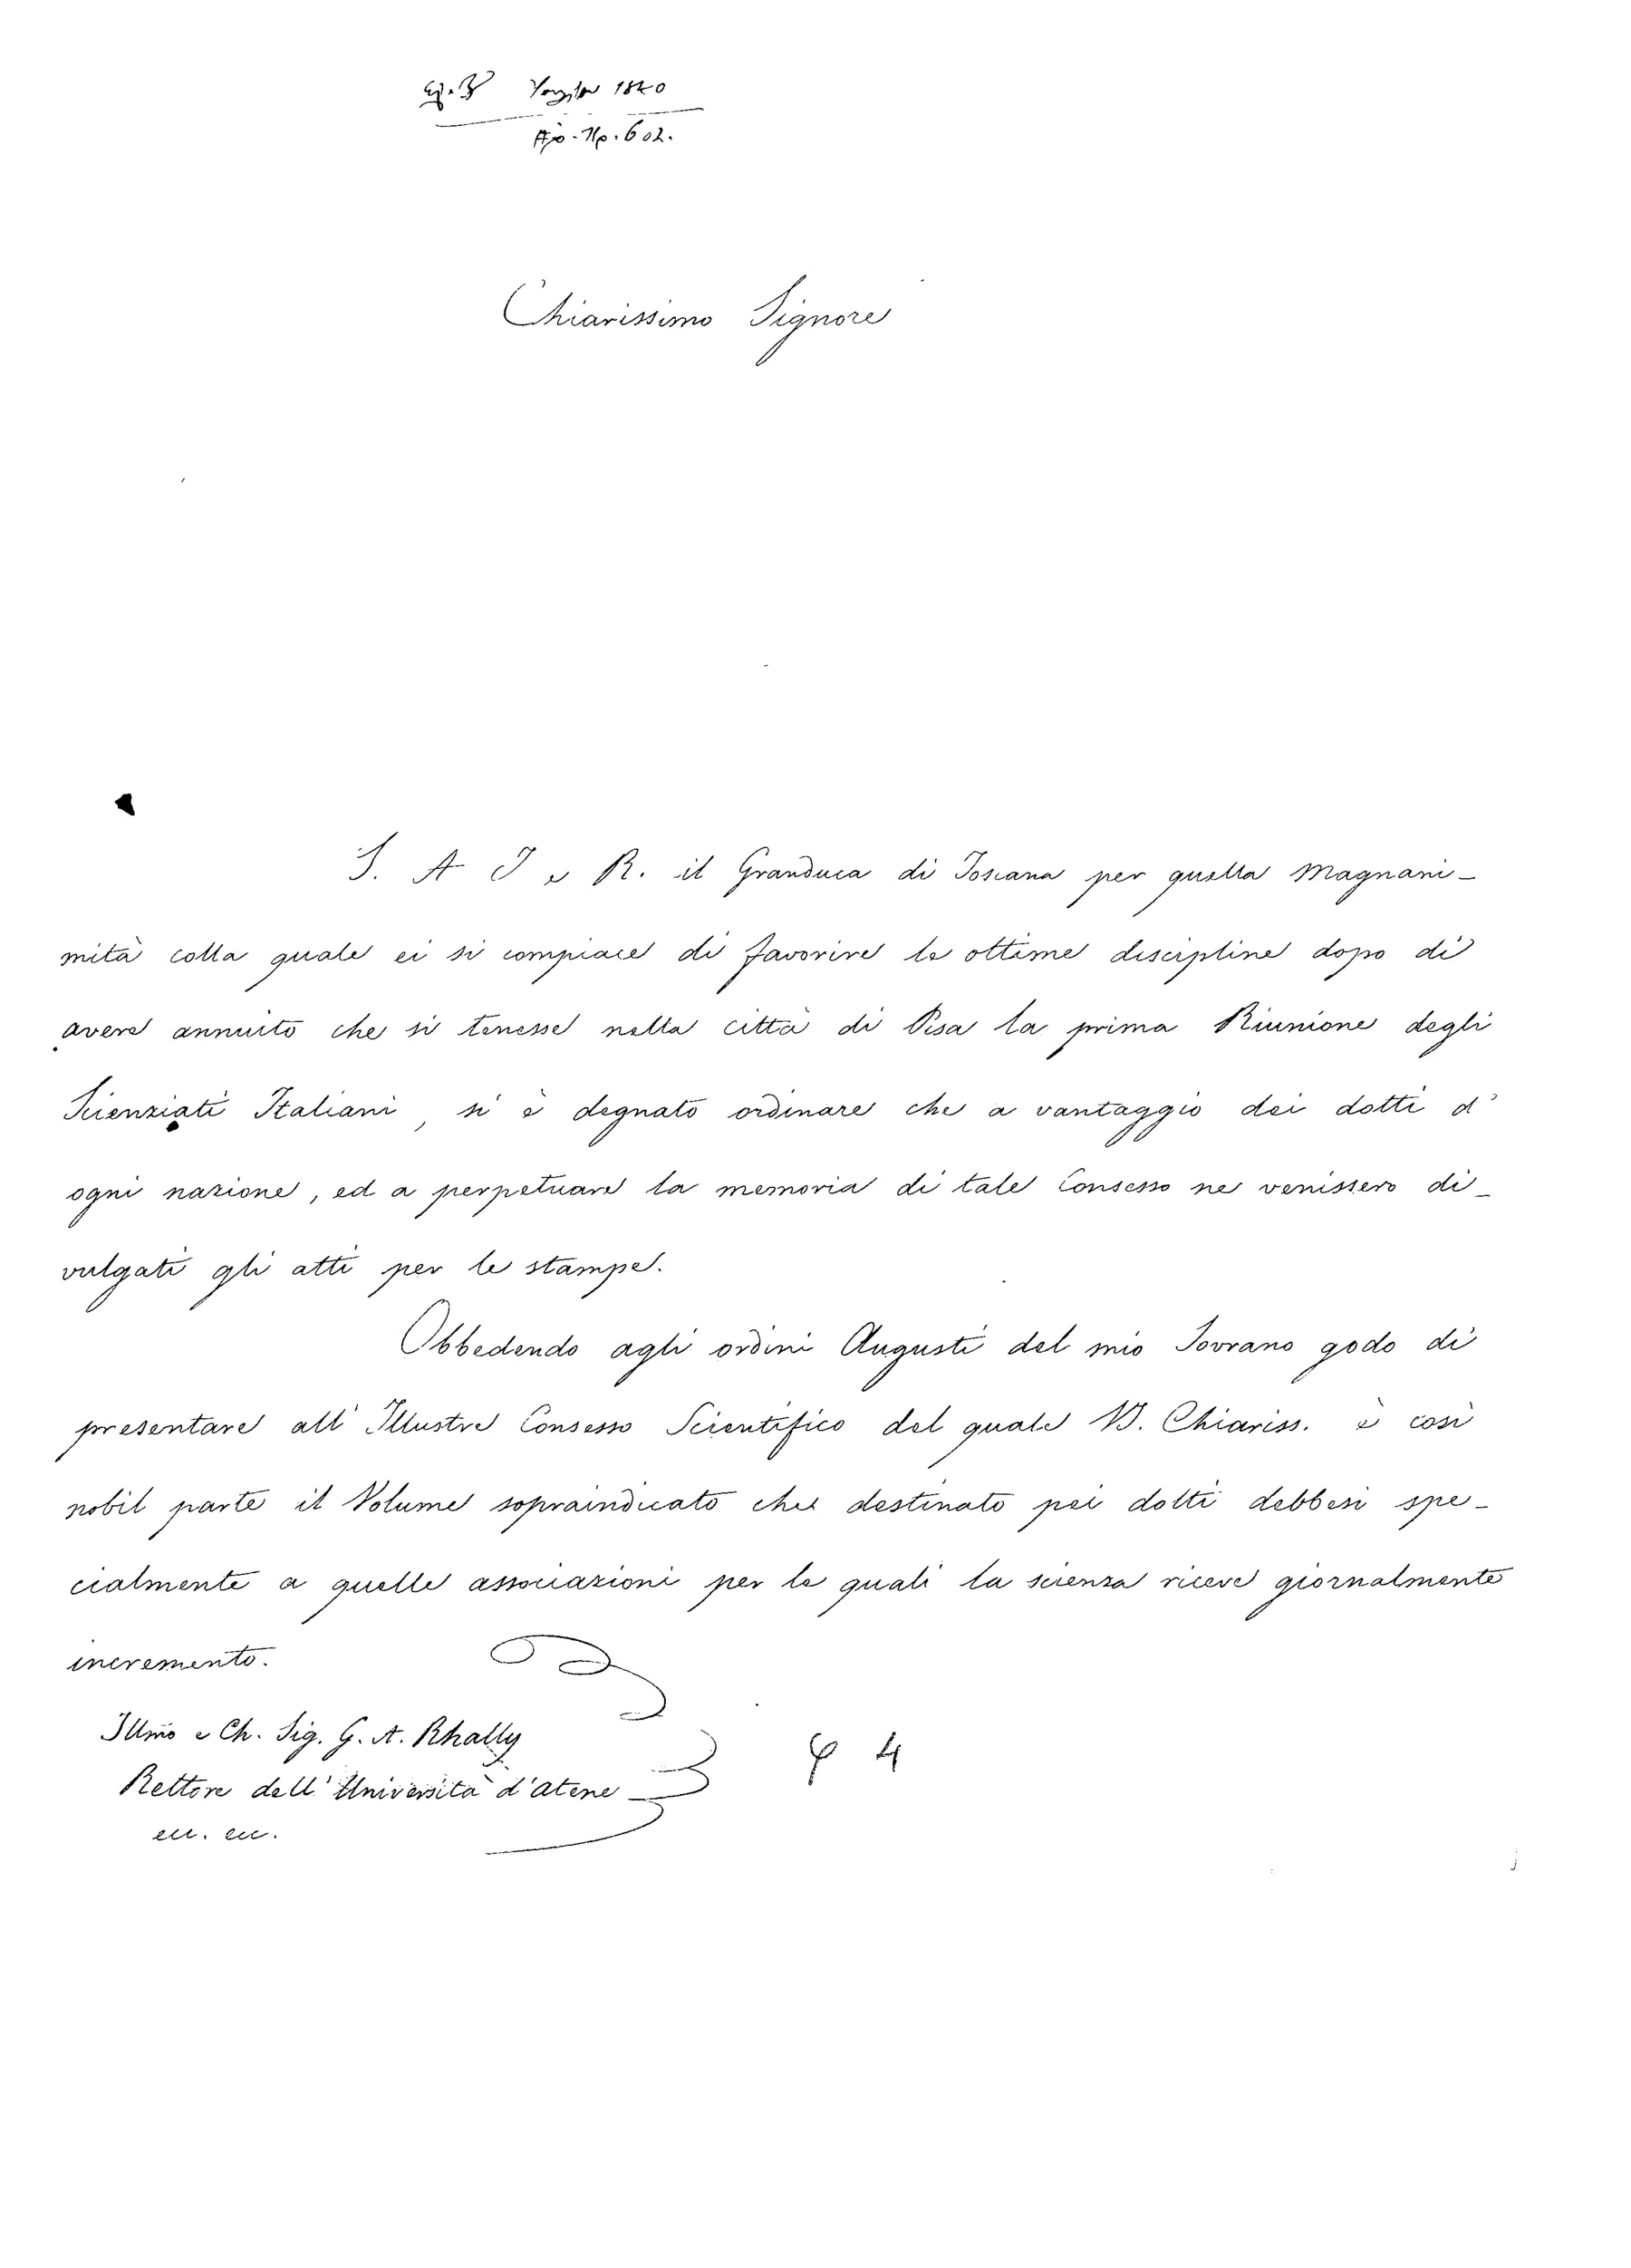 1840
Ἀρ. Πρ. 602.
Chiarissimo Signore
S. A I e R. il Granduca di Toscana per quella Magnani-
mità colla quale ei si compiace di favorire le ottime discipline dopo di
avere annuito che si tenesse nella città di Pisa la prima Riunione degli
Scienziati Italiani, si è degnato ordinare che a vantaggio dei dotti d'
ogni nazione, ed a perpetuare la memoria di tale Consesso ne venissero di-
vulgati gli atti per le stampe.
Obbedendo agli ordini Augusti del mio Sovrano godo di
presentare all' Illustre Consesso Scientifico del quale V. Chiariss. è così
nobil parte il Volume sopraindicato che destinato pei dotti debbesi spe-
cialmente a quelle associazioni per le quali la scienza riceve giornalmente
incremento.
Illmo e Ch. Sig. G. A. Rhally
Rettore dell' Università d'Atene
ec. ec.
φ 4